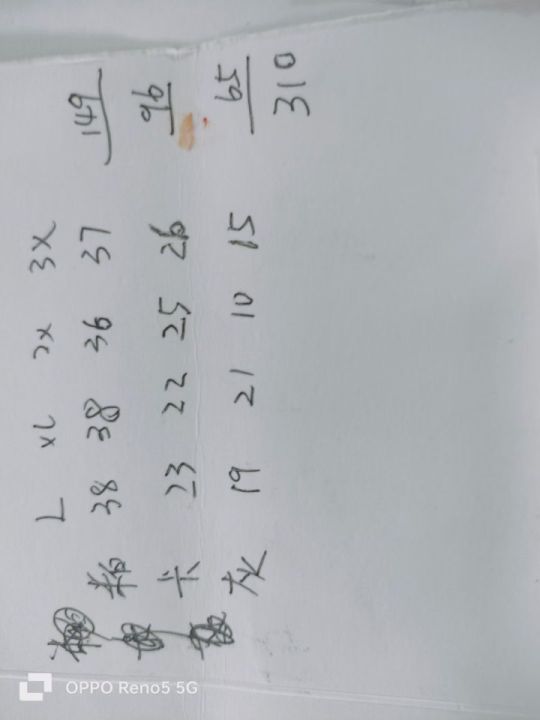 L XL 2X 3X
粉 38 38 36 37 149
卡 23 22 25 26 96
灰 19 21 10 15 65
310
OPPO Reno5 5G